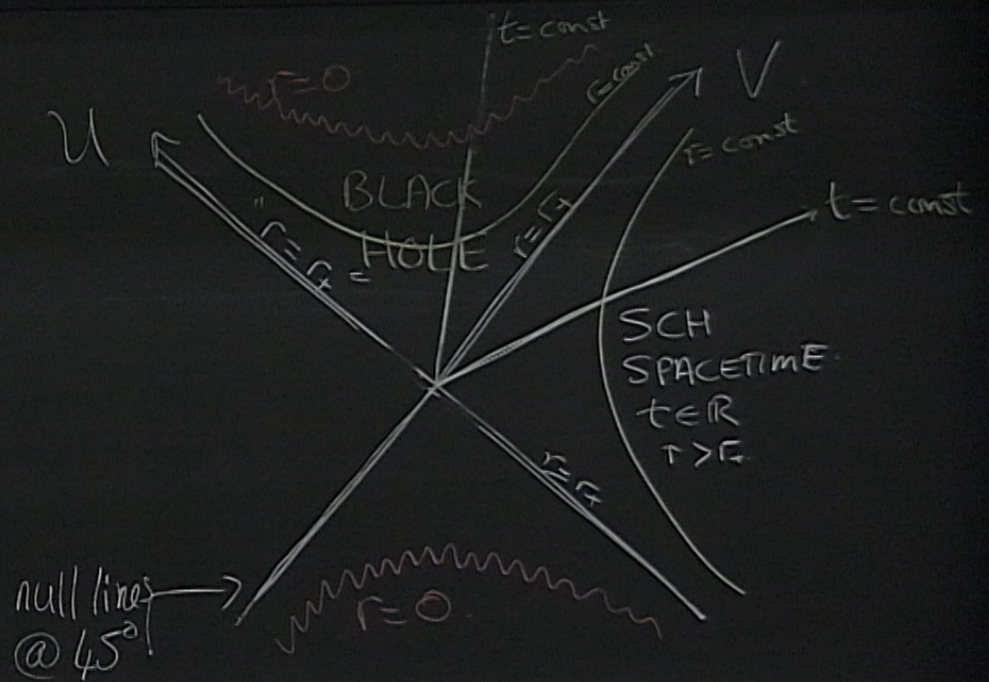 t = const
r = 0
r = const
V
U
r = const
BLACK
HOLE
t = const
"r = r₊ =
r = r₊
SCH
SPACETIME
t ∈ ℝ
r > r₊
r = r₊
null lines
@ 45°
r = 0